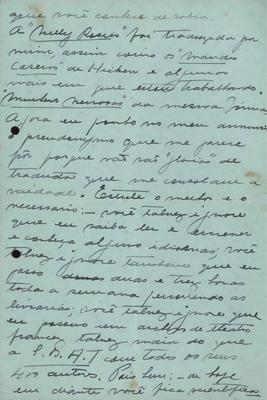 que você conhece de sobra.
A "Nelly Rosier" foi traduzida por
mim, assim como os "Maridos
de Hicken e algumas
mais em que estou trabalhando.
"Muchas nervosas" da mesma forma.
Agora eu ponho no meu
o pseudonymo que me parece
pôr porque não são "glorias" de
traductor que me consolam a
vaidade. o melhor e o
necessario: — você talvez ignore
que eu saiba ler e escrever
e conheça alguns idiomas; você
talvez ignore tambem que eu
passo duas e tres horas
toda a semana percorrendo as
livrarias; você talvez ignore que
eu possuo um archivo de theatro
francez talvez maior do que
a S. B. A. T. com todos os seus
400 autores. Pois bem: — de hoje
em diante você fica scientifica